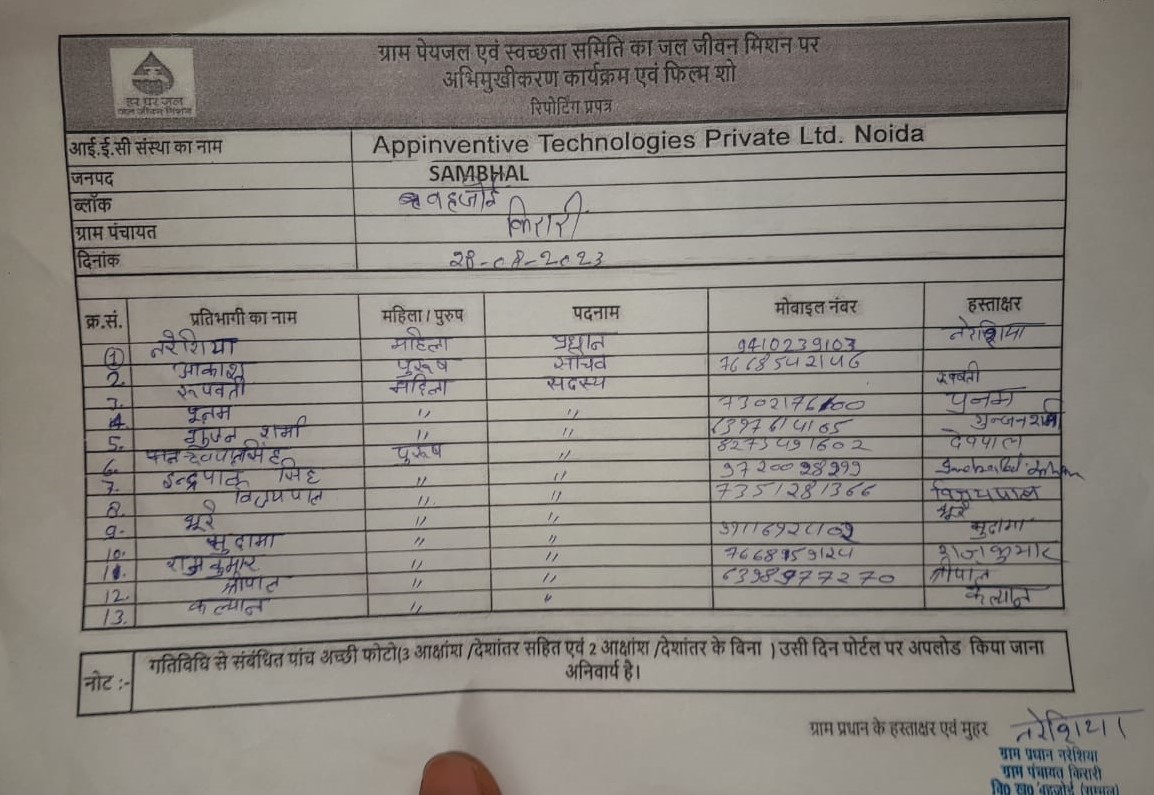 ग्राम पेयजल एवं स्वच्छता समिति का जल जीवन मिशन पर
अभिमुखीकरण कार्यक्रम एवं फिल्म शो
रिपोर्टिंग प्रपत्र
हर घर जल
जल जीवन मिशन
आई.ई.सी संस्था का नाम Appinventive Technologies Private Ltd. Noida
जनपद SAMBHAL
ब्लॉक वहजोई
ग्राम पंचायत किरारी
दिनांक 28-08-2023
क्र.सं. प्रतिभागी का नाम महिला / पुरुष पदनाम मोबाइल नंबर हस्ताक्षर
1 नरेशिया महिला प्रधान 9410239103 नरेशिया
2. आकाश पुरुष सचिव 7668542146
3. रूपवती महिला सदस्य रूपवती
4 पूनम ,, ,, पुनम
5. गुंजन शर्मा ,, ,, गुन्जन शर्मा
6. देवपाल सिंह पुरुष ,, 8273491602 देवपाल
7. इन्द्रपाल सिंह ,, ,, 9720098999
8. विजयपाल ,, ,, 7351281366 विजयपाल
9. भूरे ,, ,, भूरे
10. सुदामा ,, ,, सुदामा
11. राजकुमार ,, ,, राजकुमार
12. श्रीपाल ,, ,, 6398977270 श्रीपाल
13. कल्यान ,, ,, कल्यान
नोट :- गतिविधि से संबंधित पांच अच्छी फोटो(3 आक्षांश /देशांतर सहित एवं 2 आक्षांश /देशांतर के बिना ) उसी दिन पोर्टल पर अपलोड किया जाना
अनिवार्य है।
ग्राम प्रधान के हस्ताक्षर एवं मुहर नरेशिया
ग्राम प्रधान नरेशिया
ग्राम पंचायत किरारी
वि० ख० बहजोई (सम्भल)